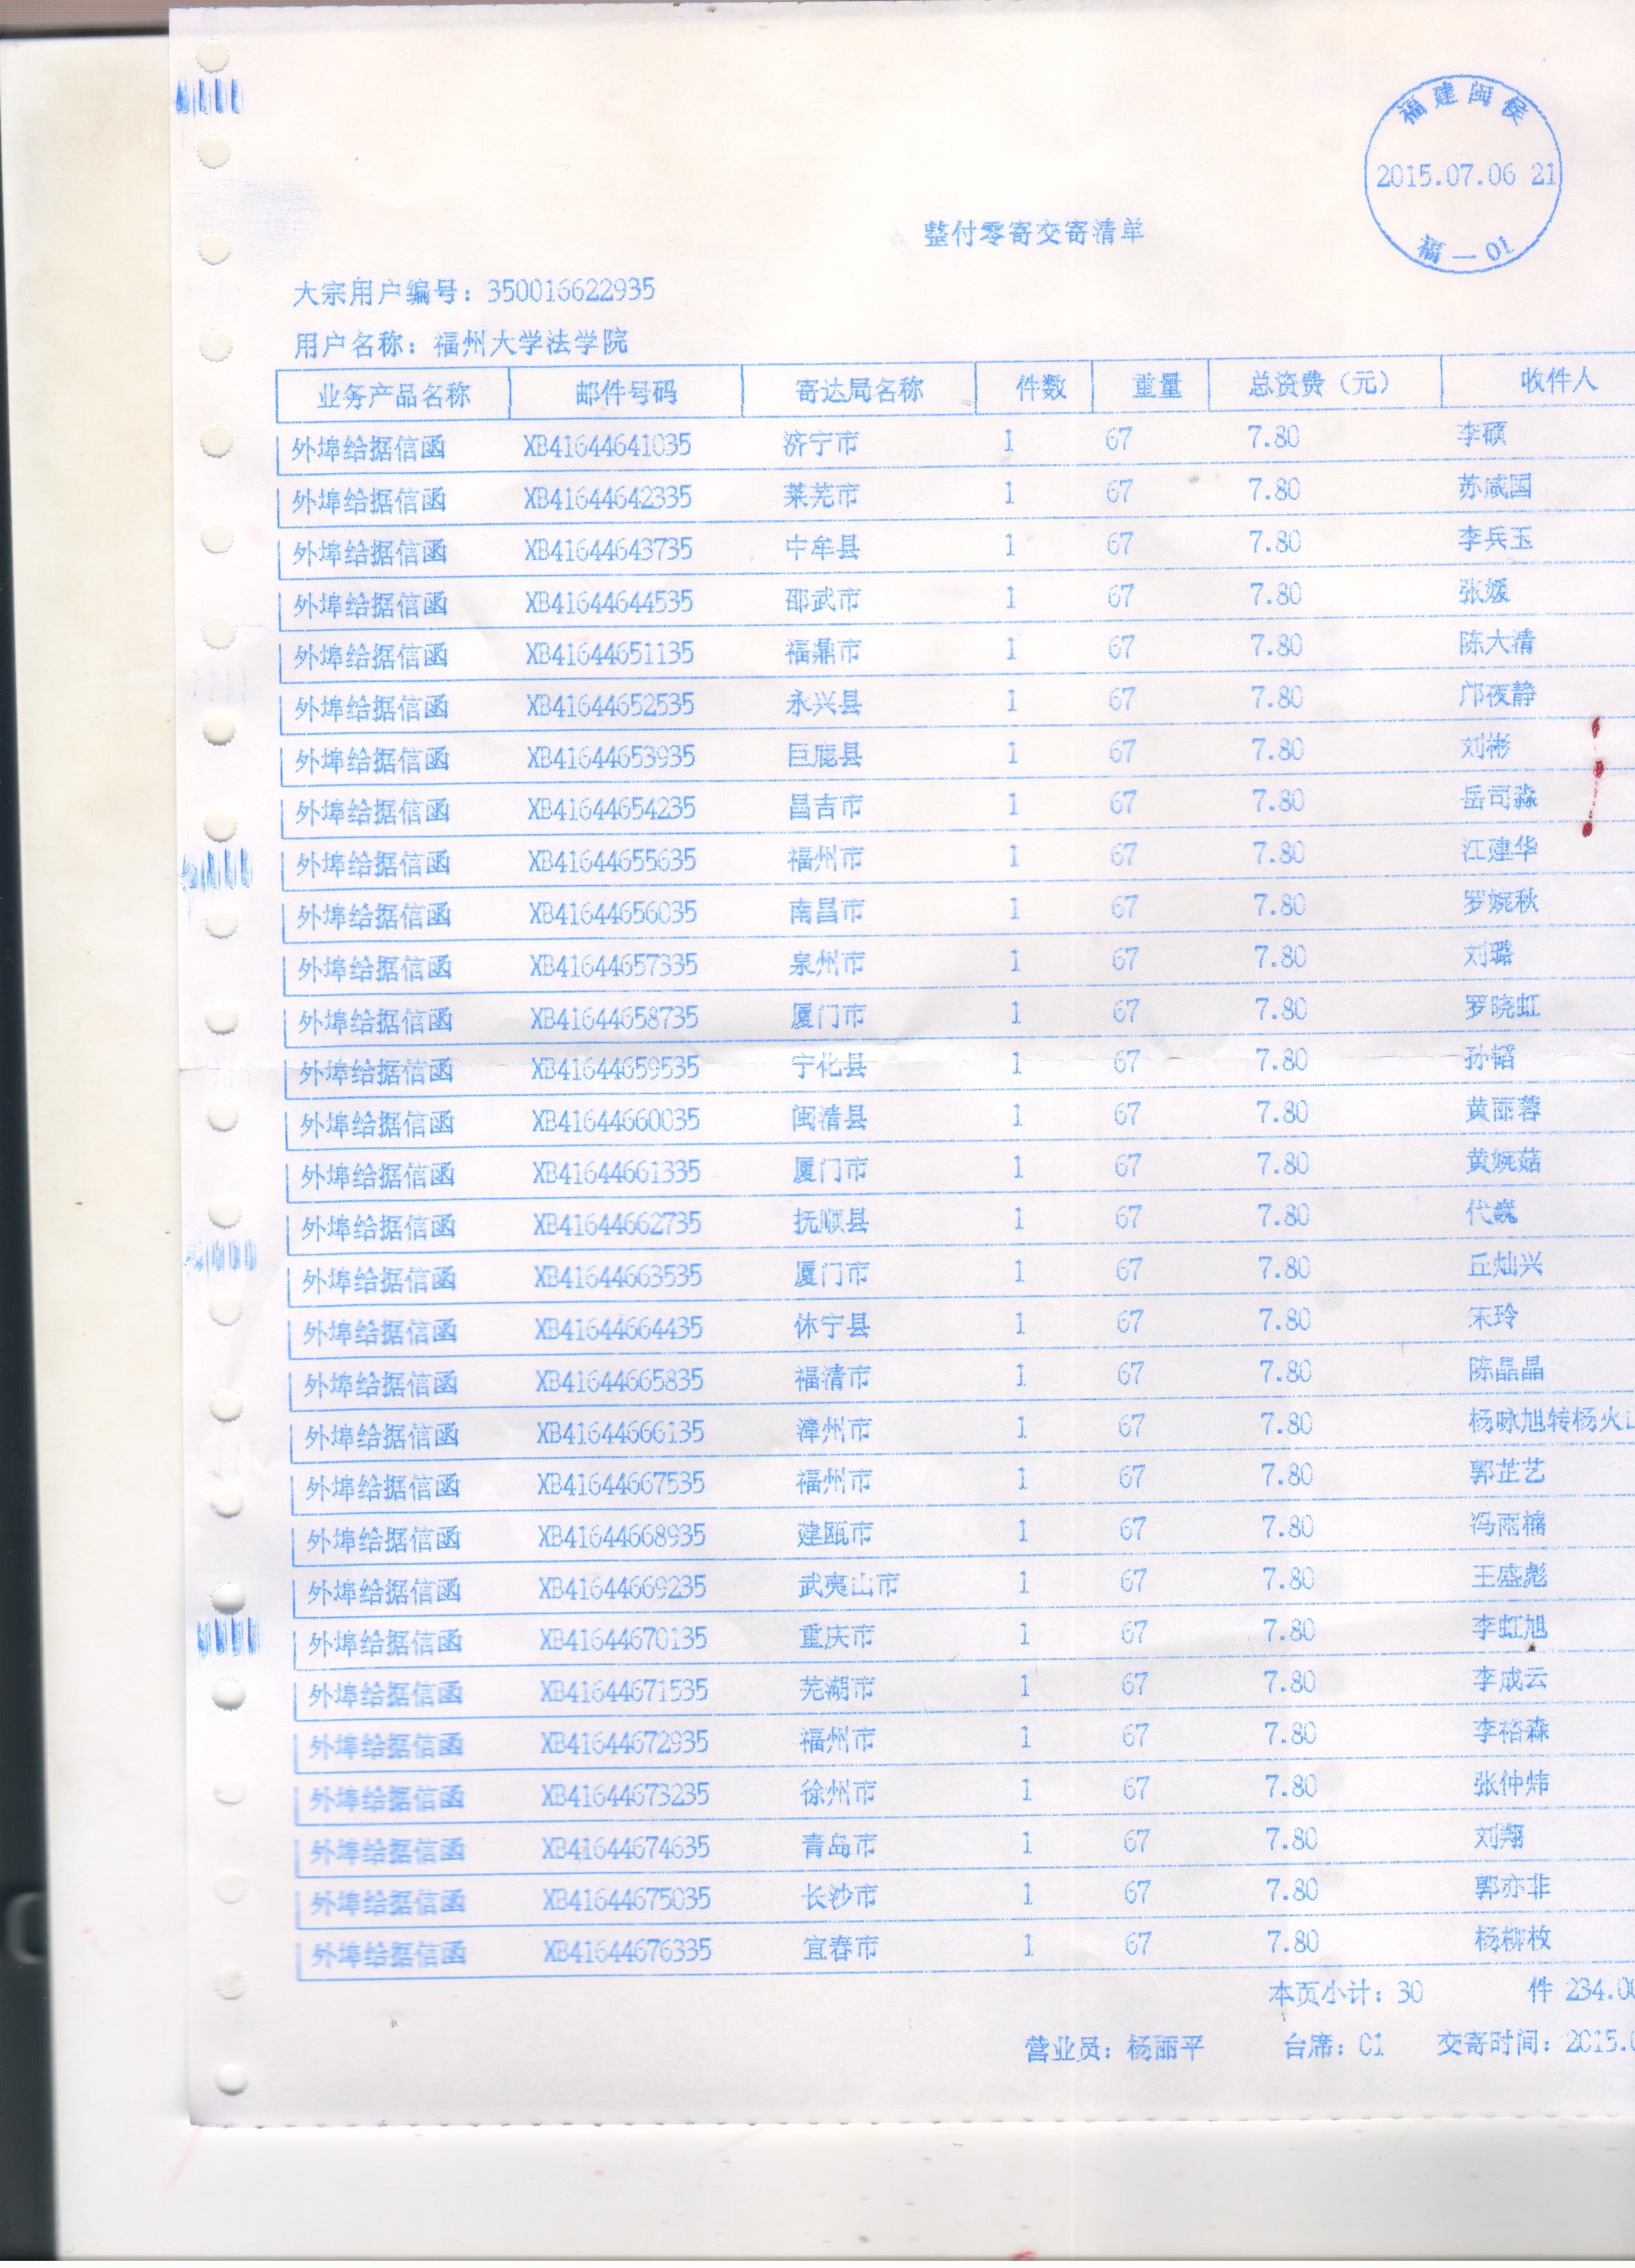 福建闽侯
2015.07.06 21
福一01
整付零寄交寄清单
大宗用户编号：350016622935
用户名称：福州大学法学院
业务产品名称 邮件号码 寄达局名称 件数 重量 总资费（元） 收件人
外埠给据信函 XB41644641035 济宁市 1 67 7.80 李硕
外埠给据信函 XB41644642335 莱芜市 1 67 7.80 苏咸国
外埠给据信函 XB41644643735 中牟县 1 67 7.80 李兵玉
外埠给据信函 XB41644644535 邵武市 1 67 7.80 张媛
外埠给据信函 XB41644651135 福鼎市 1 67 7.80 陈大清
外埠给据信函 XB41644652535 永兴县 1 67 7.80 邝夜静
外埠给据信函 XB41644653935 巨鹿县 1 67 7.80 刘彬
外埠给据信函 XB41644654235 昌吉市 1 67 7.80 岳司淼
外埠给据信函 XB41644655635 福州市 1 67 7.80 江建华
外埠给据信函 XB41644656035 南昌市 1 67 7.80 罗婉秋
外埠给据信函 XB41644657335 泉州市 1 67 7.80 刘璐
外埠给据信函 XB41644658735 厦门市 1 67 7.80 罗晓虹
外埠给据信函 XB41644659535 宁化县 1 67 7.80 孙韬
外埠给据信函 XB41644660035 闽清县 1 67 7.80 黄丽蓉
外埠给据信函 XB41644661335 厦门市 1 67 7.80 黄婉菇
外埠给据信函 XB41644662735 抚顺县 1 67 7.80 代巍
外埠给据信函 XB41644663535 厦门市 1 67 7.80 丘灿兴
外埠给据信函 XB41644664435 休宁县 1 67 7.80 宋玲
外埠给据信函 XB41644665835 福清市 1 67 7.80 陈晶晶
外埠给据信函 XB41644666135 漳州市 1 67 7.80 杨咏旭转杨火山
外埠给据信函 XB41644667535 福州市 1 67 7.80 郭芷艺
外埠给据信函 XB41644668935 建瓯市 1 67 7.80 冯雨楠
外埠给据信函 XB41644669235 武夷山市 1 67 7.80 王盛彪
外埠给据信函 XB41644670135 重庆市 1 67 7.80 李虹旭
外埠给据信函 XB41644671535 芜湖市 1 67 7.80 李成云
外埠给据信函 XB41644672935 福州市 1 67 7.80 李榕森
外埠给据信函 XB41644673235 徐州市 1 67 7.80 张仲炜
外埠给据信函 XB41644674635 青岛市 1 67 7.80 刘翔
外埠给据信函 XB41644675035 长沙市 1 67 7.80 郭亦非
外埠给据信函 XB41644676335 宜春市 1 67 7.80 杨柳枚
本页小计：30 件 234.00
营业员：杨丽平 台席：01 交寄时间：2015.